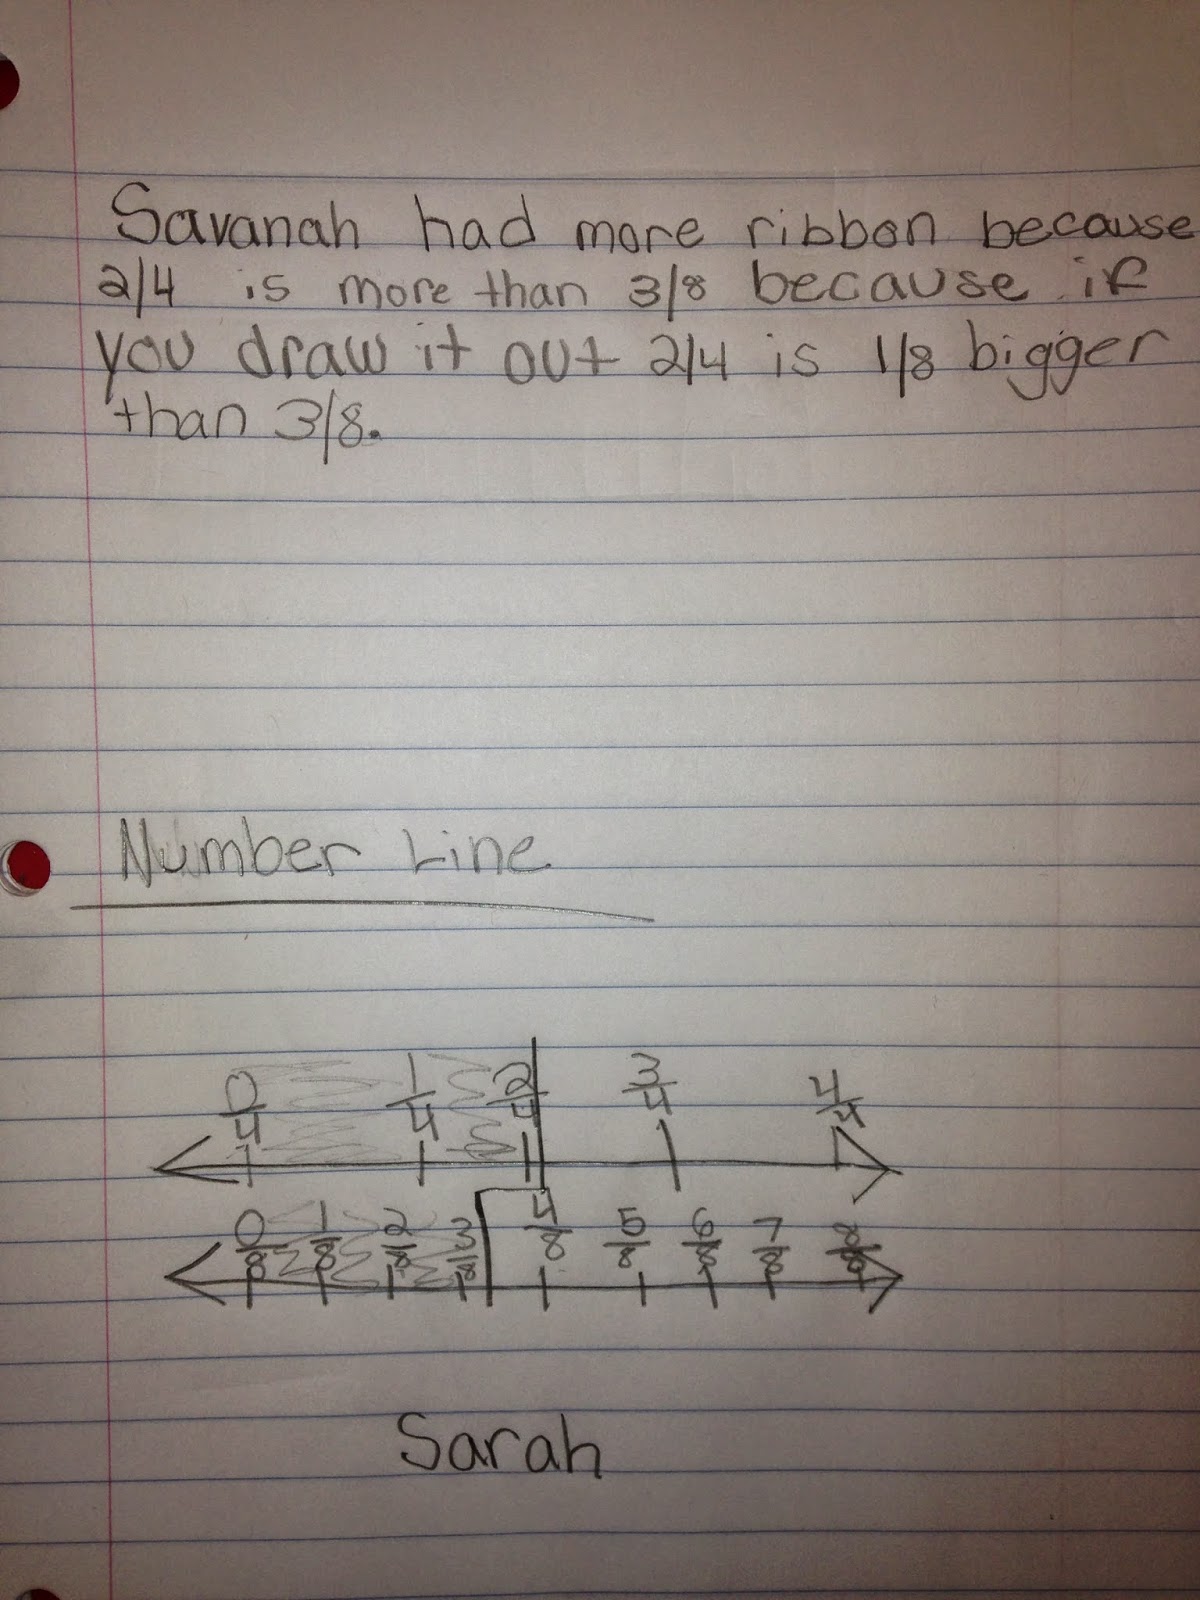 Savanah had more ribbon because
2/4 is more than 3/8 because if
you draw it out 2/4 is 1/8 bigger
than 3/8.
Number Line
0/4 1/4 2/4 3/4 4/4
0/8 1/8 2/8 3/8 4/8 5/8 6/8 7/8 8/8
Sarah